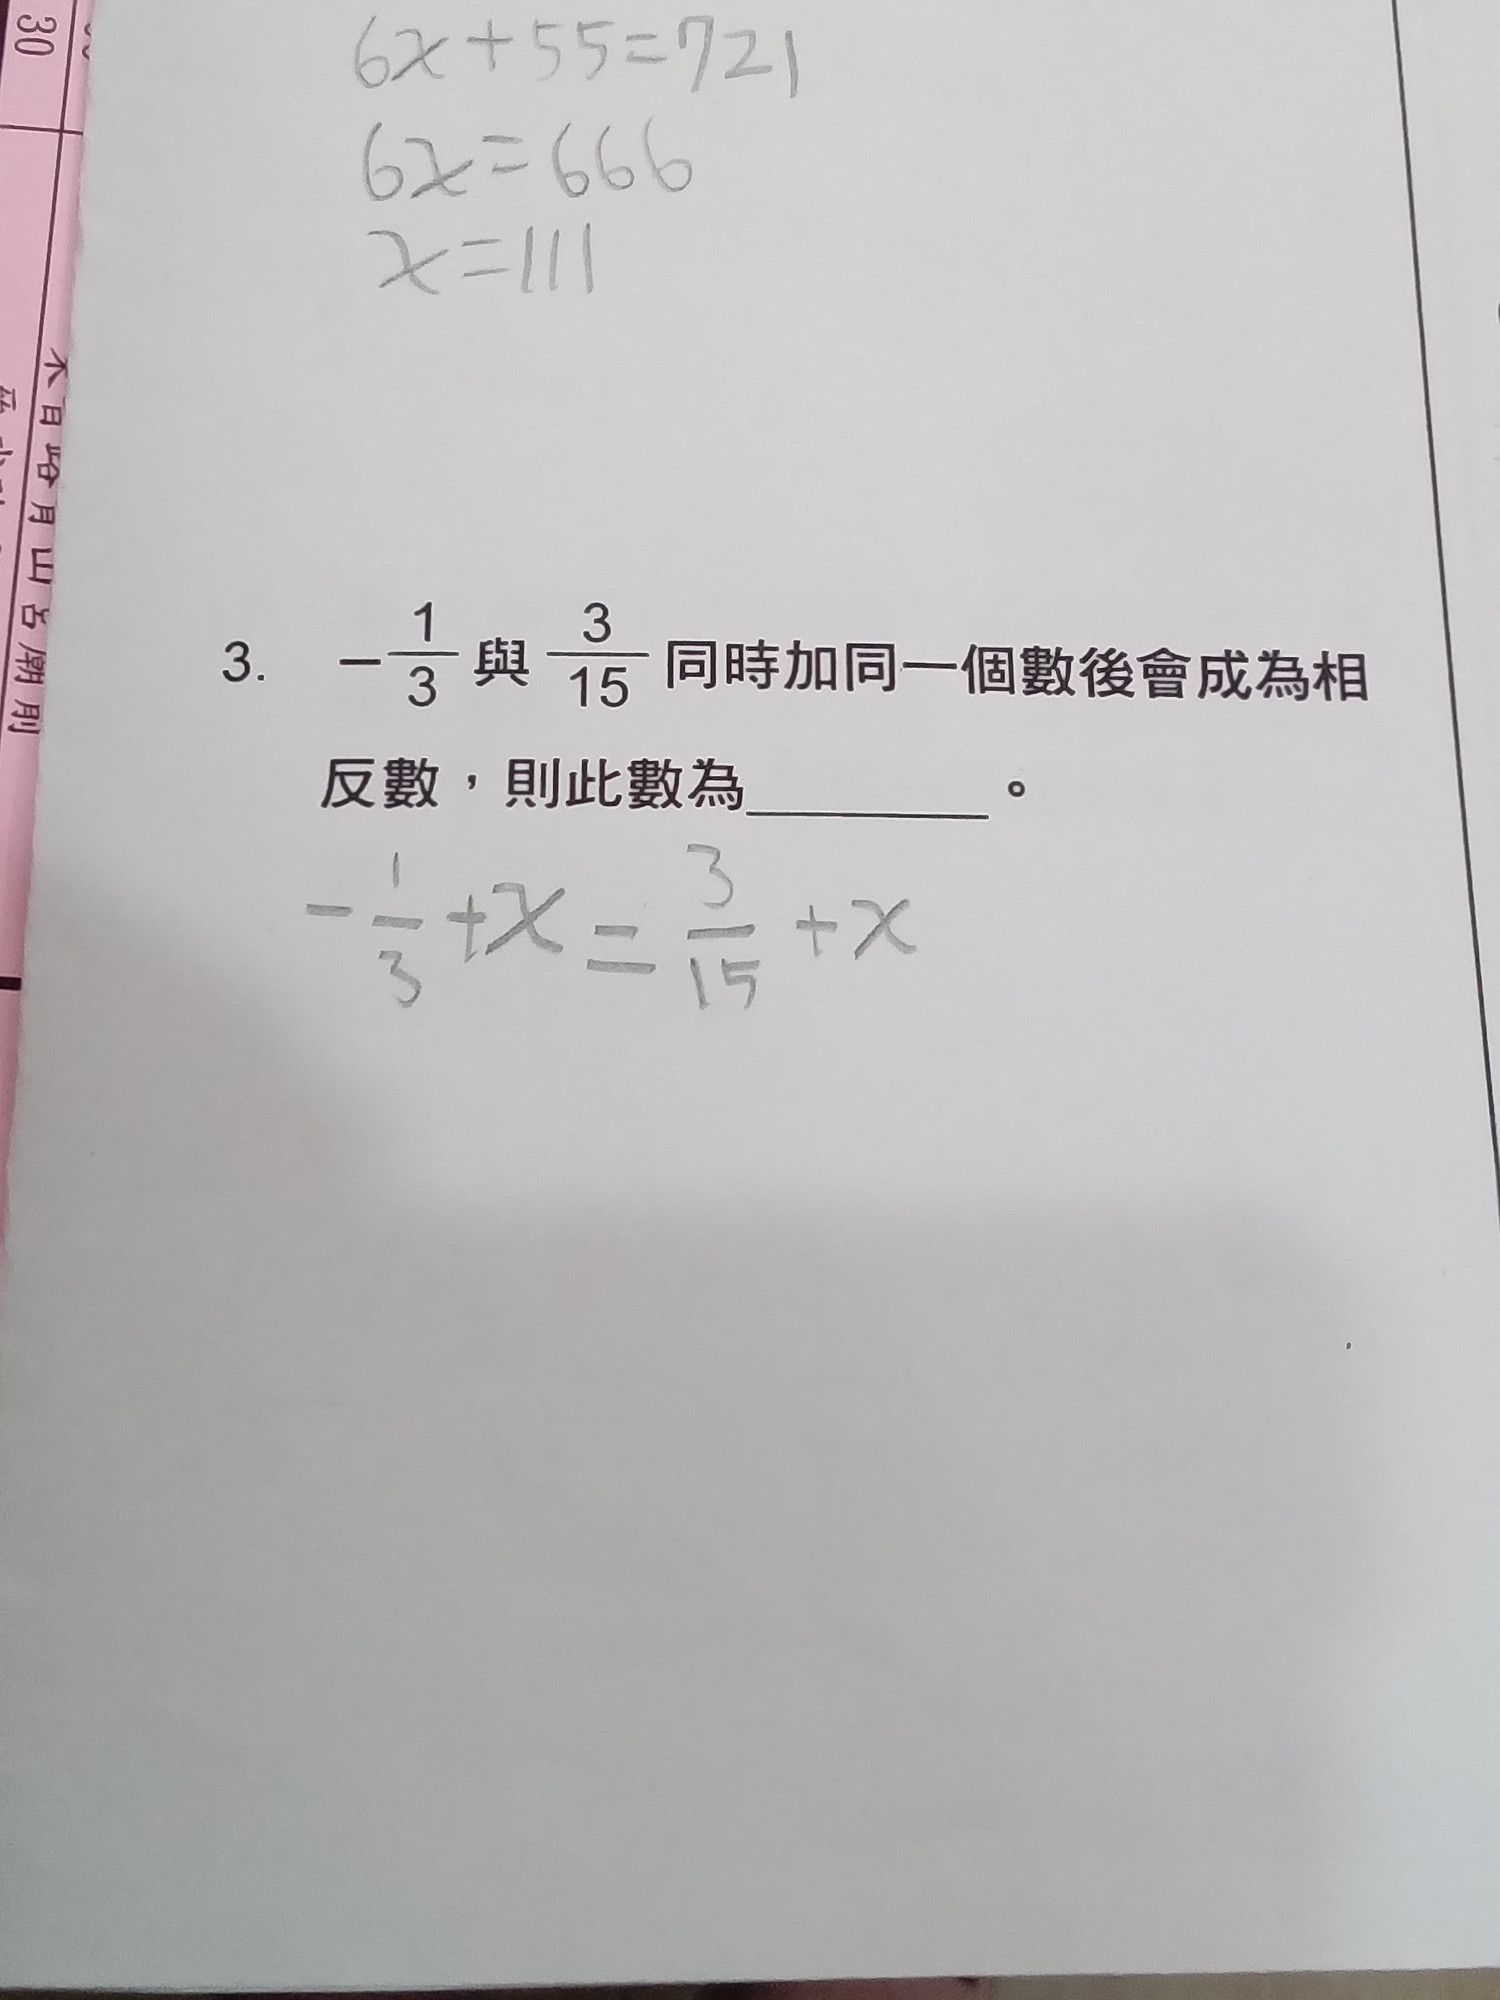 30
6x+55=721
6x=666
x=111
3. -1/3 與 3/15 同時加同一個數後會成為相
反數，則此數為________。
-1/3+x=3/15+x